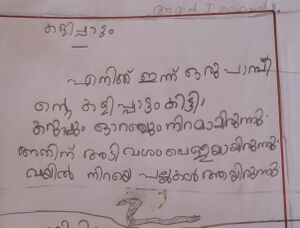 കളിപ്പാട്ടം
എനിക്ക് ഇന്ന് ഒരു പാമ്പി
ന്റെ കളിപ്പാട്ടം കിട്ടി,
കറുപ്പും ഓറഞ്ചും നിറമായിരുന്നു.
അതിന് അടി വശം വെള്ളയായിരുന്നു.
വയിൽ നിറയെ പല്ലുകൾ ആയിരുന്നു